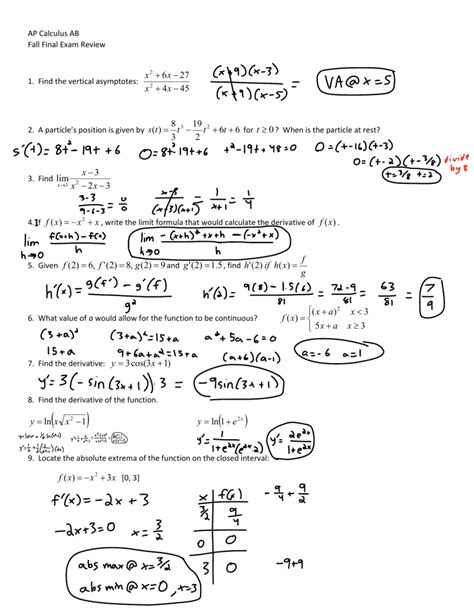 AP Calculus AB
Fall Final Exam Review
1. Find the vertical asymptotes: (x² + 6x − 27)/(x² + 4x − 45)
(x+9)(x−3)/(x+9)(x−5) = VA @ x = 5
2. A particle's position is given by s(t) = 8/3 t³ − 19/2 t² + 6t + 6 for t ≥ 0? When is the particle at rest?
s'(t) = 8t² − 19t + 6 0 = 8t² − 19t + 6 t² − 19t + 48 = 0 0 = (t − 16)(t − 3)
0 = (t − 2)(t − 3/8) divide by 8
t = 3/8 t = 2
3. Find lim x→3 (x − 3)/(x² − 2x − 3)
(3−3)/(9−6−3) = 0/0 (x−3)/(x−3)(x+1) = 1/(x+1) = 1/4
4. If f(x) = −x² + x, write the limit formula that would calculate the derivative of f(x).
lim h→0 (f(x+h) − f(x))/h lim h→0 (−(x+h)² + x+h − (−x²+x))/h
5. Given f(2) = 6, f'(2) = 8, g(2) = 9 and g'(2) = 1.5, find h'(2) if h(x) = f/g
h'(x) = (g(f') − g'(f))/g² h'(2) = (9(8) − 1.5(6))/81 = (72−9)/81 = 63/81 = 7/9
6. What value of a would allow for the function to be continuous? f(x) = { (x + a)² x < 3
5x + a x ≥ 3
(3+a)² (3+a)² = 15+a a² + 5a − 6 = 0
15+a 9+6a+a² = 15+a (a+6)(a−1) a = −6 a = 1
7. Find the derivative: y = 3cos(3x + 1)
y' = 3(−sin(3x+1))·3 = −9sin(3x+1)
8. Find the derivative of the function.
y = ln(x√(x² − 1)) y = ln(1 + e²ˣ)
y' = 1/(1+e²ˣ) (e²ˣ·2) y' = 2e²ˣ/(1+e²ˣ)
9. Locate the absolute extrema of the function on the closed interval:
f(x) = −x² + 3x [0, 3]
f'(x) = −2x + 3
−2x+3 = 0 x = 3/2
x f(x)
3/2 9/4 −9/4 + 9/2
0 0
3 0 −9+9
abs max @ x = 3/2
abs min @ x = 0, x = 3